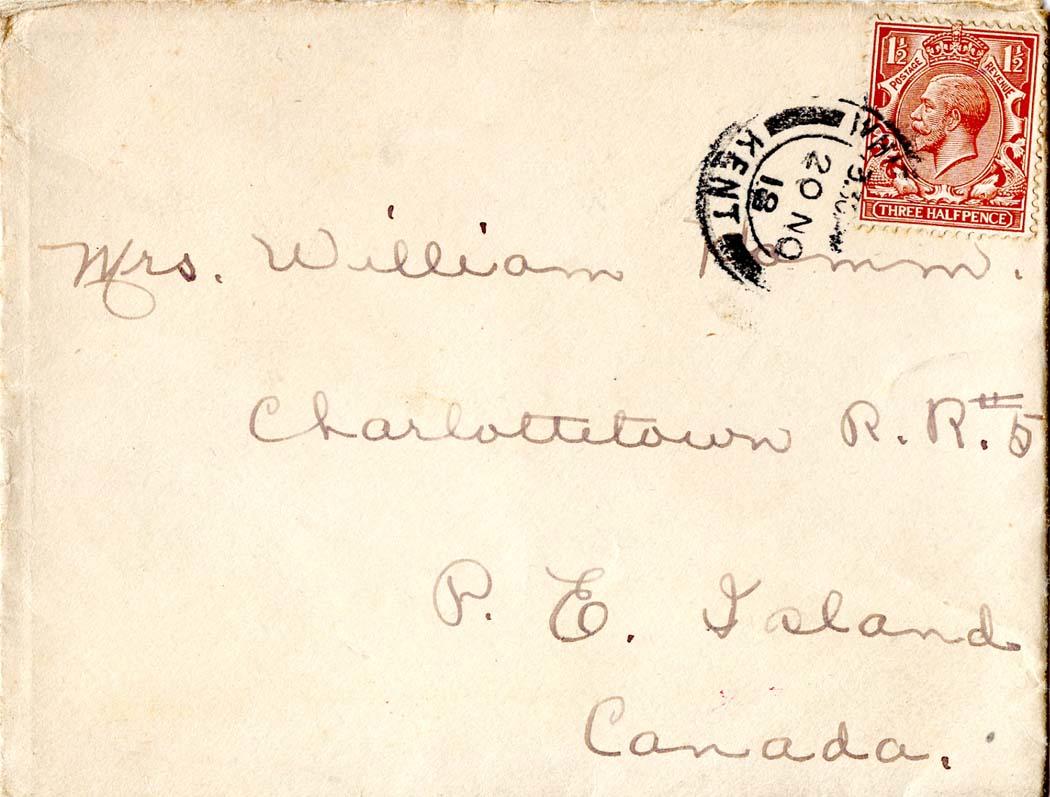 1½ 1½
POSTAGE REVENUE
THREE HALFPENCE
KENT
20 NO
18
Mrs. William
Charlottetown R. R. #5
P. E. Island
Canada.